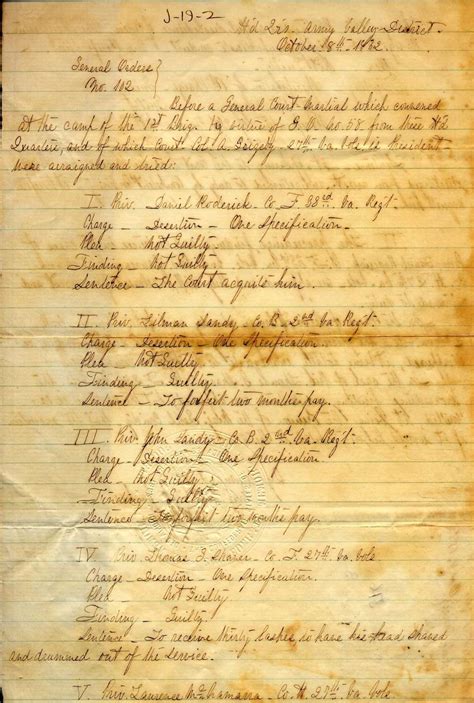 J-19-2
Hd Qrs. Army Valley District.
October 18th 1862
General Orders
No. 112
Before a General Court Martial which convened
at the camp of the 1st Brign by virtue of G. O. No. 58 from these Hd
Quarters, and of which Court Col. A. Grigsby 27th Va. Vols. is President
were arraigned and tried:
I. Priv. Daniel Roderick - Co. F 33rd Va. Regt.
Charge - Desertion - One Specification.
Plea - Not Guilty.
Finding - Not Guilty.
Sentence - The Court acquits him.
II. Priv. Silman Sandy - Co. B. 2nd Va. Regt.
Charge - Desertion - One Specification.
Plea - Not Guilty.
Finding - Guilty.
Sentence - To forfeit two months pay.
III. Priv. John Sandy - Co. B. 2nd Va. Regt.
Charge - Desertion - One Specification
Plea - Not Guilty.
Finding - Guilty
Sentence - To forfeit two months pay.
IV Priv. Thomas J. Sharer - Co. F. 27th Va. Vols
Charge - Desertion - One Specification.
Plea - Not Guilty
Finding - Guilty.
Sentence - To receive thirty lashes, to have his head shaved
and drummed out of the service.
V. Priv. Laurence McNamarra - Co. H. 27th Va. Vols.